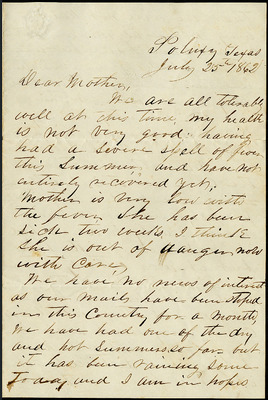 Poluxy Texas
July 25th 1862
Dear Mother,
We are all tolerable
well at this time, my health
is not very good having
had a severe spell of fever
this Summer, and have not
entirely recovered yet,
Mother is very low with
the fever she has been
sick two weeks, I think
she is out of danger now
with care,
We have no news of interest
as our mails have been stoped
in this Country for a month,
we have had one of the dry
and hot summers so far but
it has been raining some
today and I am in hopes